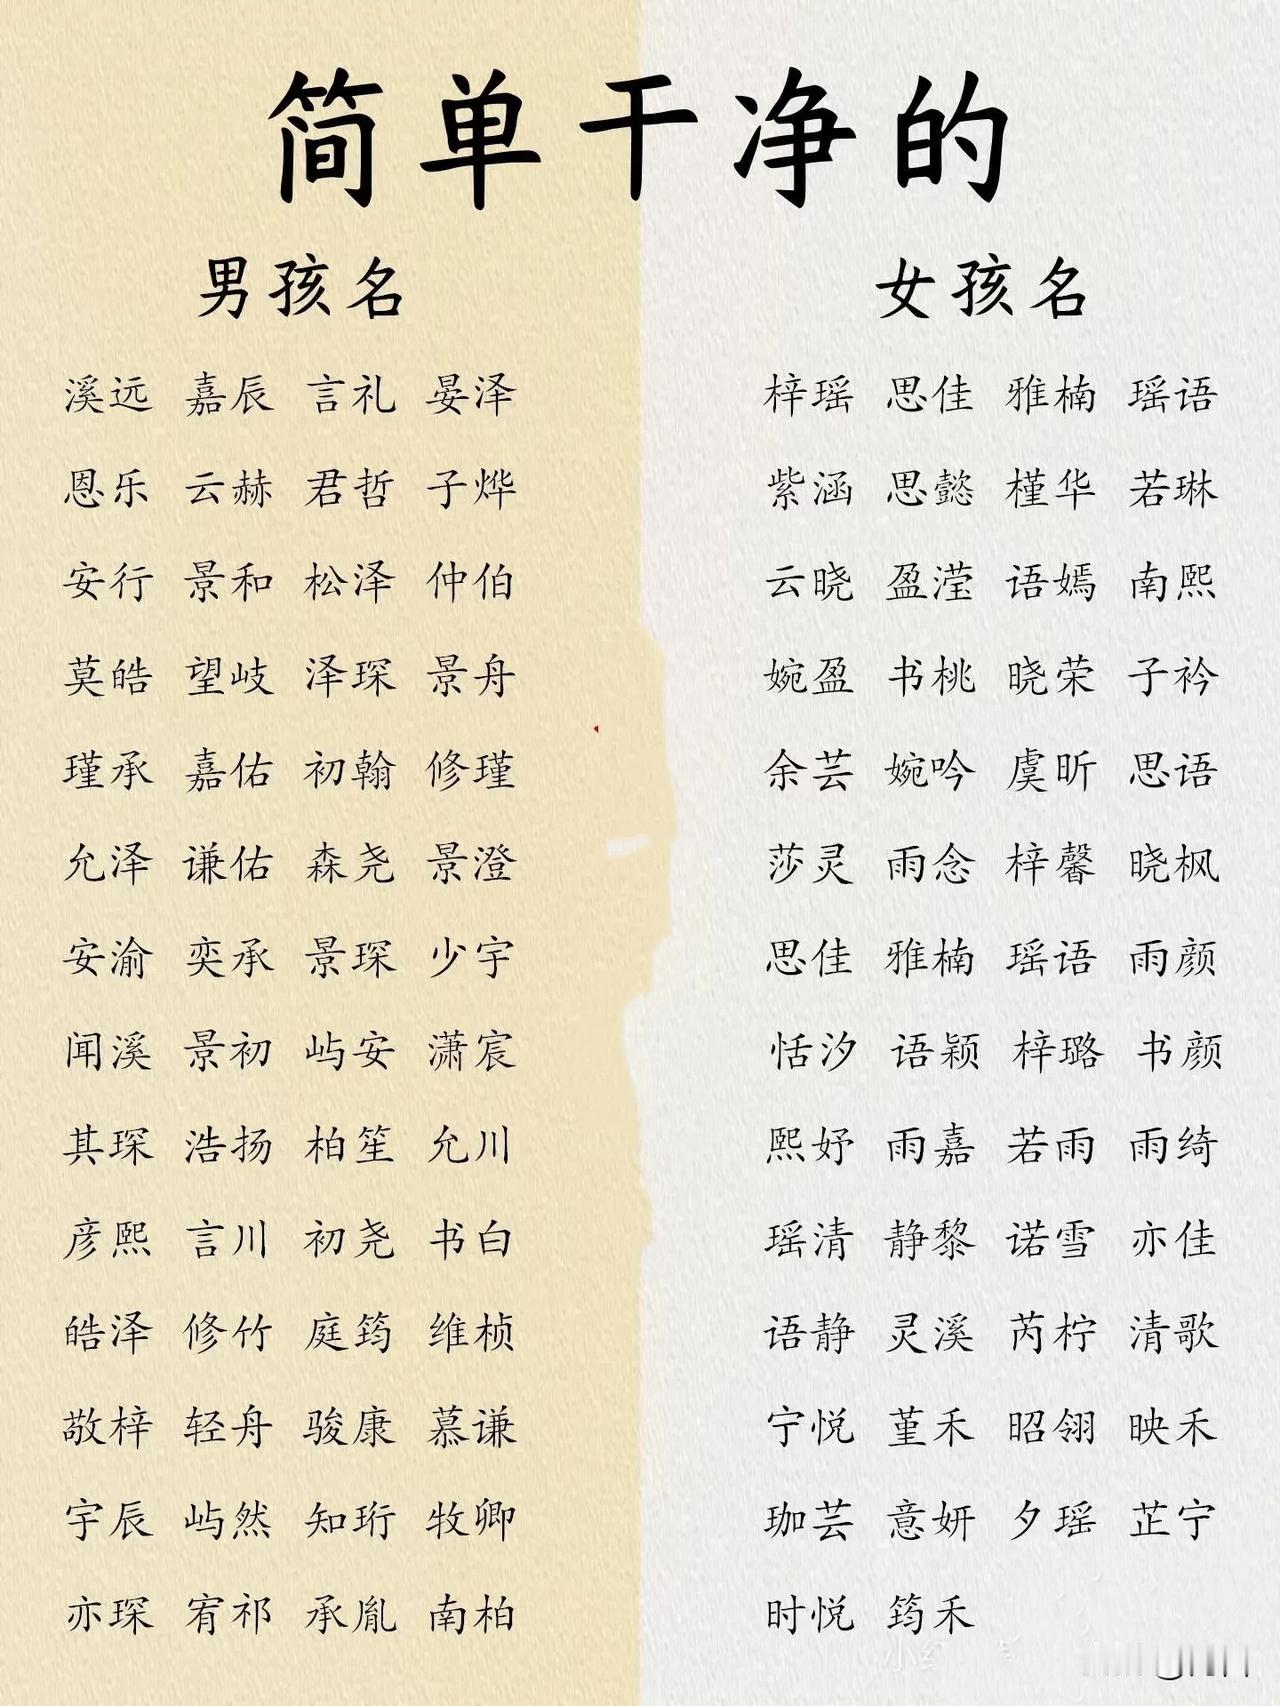 简单干净的
男孩名
溪远 嘉辰 言礼 晏泽
恩乐 云赫 君哲 子烨
安行 景和 松泽 仲伯
莫皓 望岐 泽琛 景舟
瑾承 嘉佑 初翰 修瑾
允泽 谦佑 森尧 景澄
安渝 奕承 景琛 少宇
闻溪 景初 屿安 潇宸
其琛 浩扬 柏笙 允川
彦熙 言川 初尧 书白
皓泽 修竹 庭筠 维桢
敬梓 轻舟 骏康 慕谦
宇辰 屿然 知珩 牧卿
亦琛 宥祁 承胤 南柏
女孩名
梓瑶 思佳 雅楠 瑶语
紫涵 思懿 槿华 若琳
云晓 盈滢 语嫣 南熙
婉盈 书桃 晓荣 子衿
余芸 婉吟 虞昕 思语
莎灵 雨念 梓馨 晓枫
思佳 雅楠 瑶语 雨颜
恬汐 语颖 梓璐 书颜
熙妤 雨嘉 若雨 雨绮
瑶清 静黎 诺雪 亦佳
语静 灵溪 芮柠 清歌
宁悦 堇禾 昭翎 映禾
珈芸 意妍 夕瑶 芷宁
时悦 筠禾